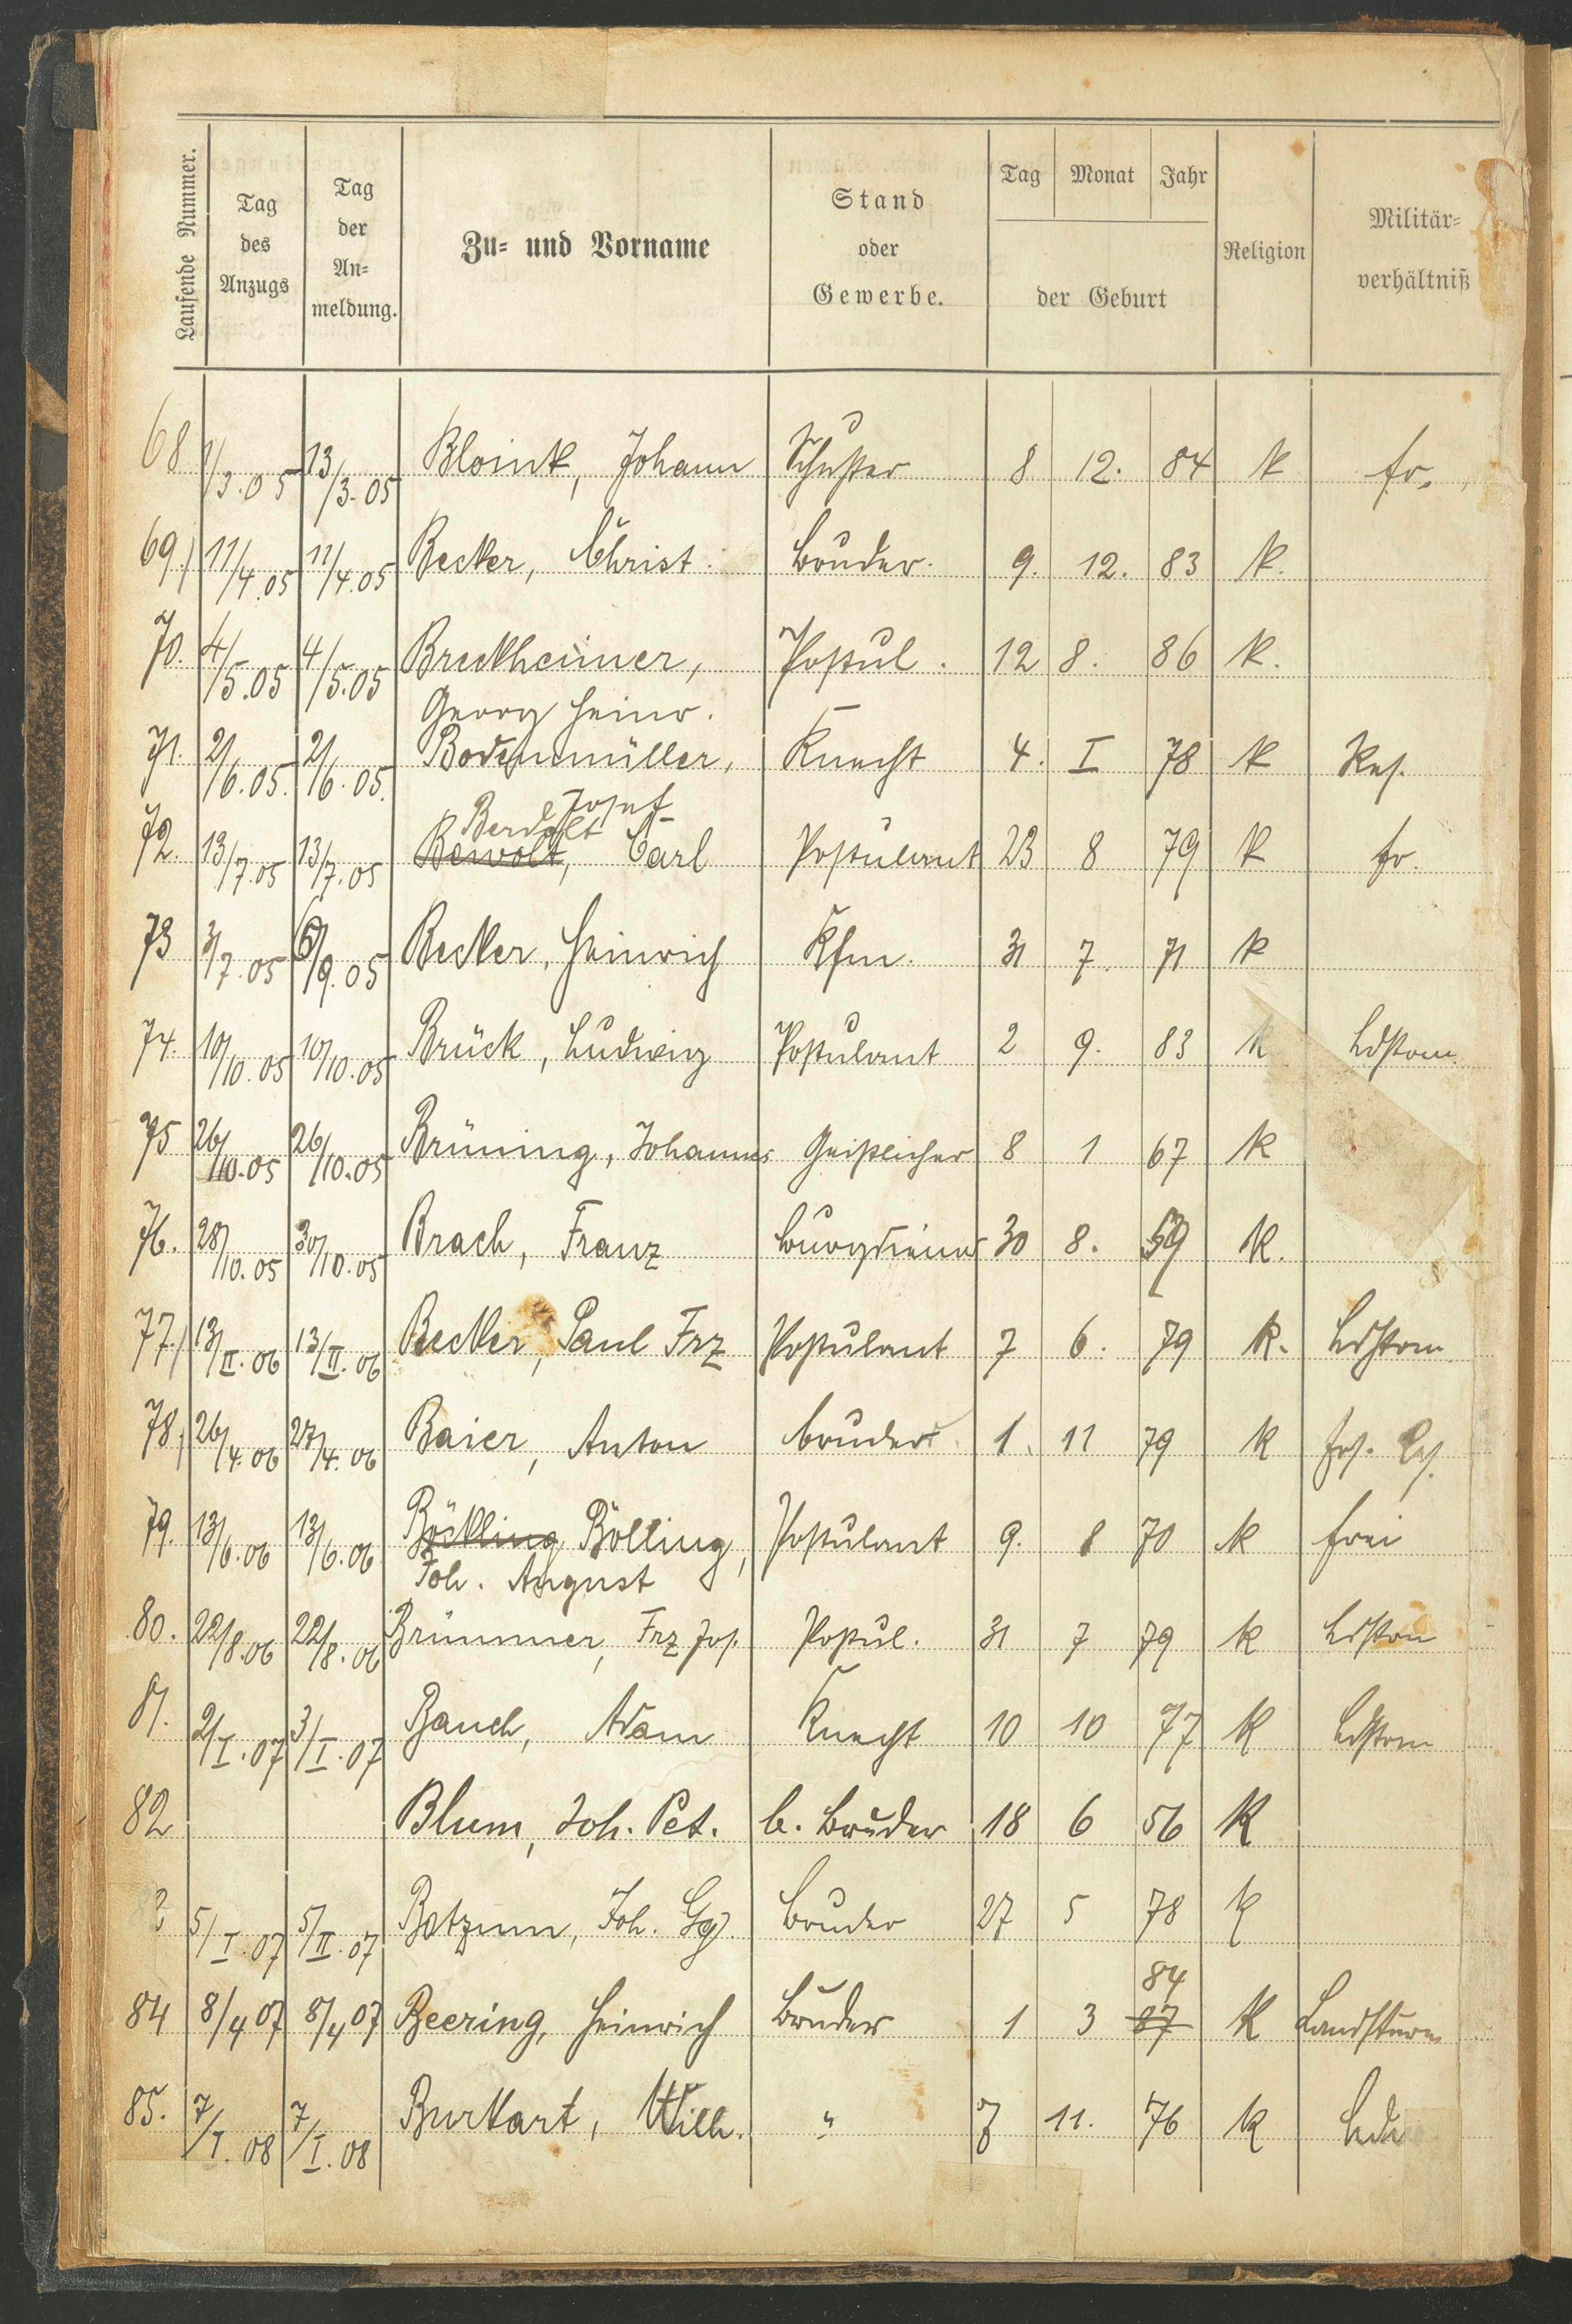 Laufende Nummer.
Tag des Anzugs
Tag der An=meldung.
Zu= und Vorname
Stand oder Gewerbe.
Tag Monat Jahr
der Geburt
Religion
Militär=verhältniß
68 1/3.05 13/3.05 Bloink, Johann Schuster 8 12. 84 k fr.
69) 11/4.05 11/4.05 Becker, Christ. Bruder. 9. 12. 83 k.
70. 4/5.05 4/5.05 Breckheimer, Postul. 12 8. 86 k.
Georg Heinr.
71. 2/6.05. 2/6.05. Bodenmüller, Knecht 4. I 78 k Res.
Josef
Berdolt
72. 13/7.05 13/7.05 Bewolt, Carl Postulant 23 8 79 k fr.
73 3/7.05 6/9.05 Becker, Heinrich Kfm. 31 7. 71 k
74. 10/10.05 10/10.05 Brück, Ludwig Postulant 2 9. 83 k Ldstrm.
75 26/10.05 26/10.05 Brüning, Johannes Geistlicher 8 1 67 k
76. 28/10.05 30/10.05 Brach, Franz 30 8. 59 k.
77.) 13/II.06 13/II.06 Becker, Paul Frz Postulant 7 6. 79 k. Ldstrm
78) 26/4.06 27/4.06 Baier, Anton Bruder 1. 11 79 k
79. 13/6.06 13/6.06 Böckling Bölling, Postulant 9. 8 70 k frei
Joh. August
80. 22/8.06 22/8.06 Brümmer, Frz Jos. Postul. 31 7 79 k Ldstrm
81. 2/I.07 3/I.07 Bauch, Adam Knecht 10 10 77 k Ldstrm
82 Blum, Joh. Pet. b. Bruder 18 6 56 k
5/I.07 5/II.07 Botzum, Joh. Gg. Bruder 27 5 78 k
84
84 8/4 07 8/4 07 Beering, Heinrich Bruder 1 3 87 k Landsturm
85. 7/I.08 7/I.08 Burkart, Wilh. " 7 11. 76 k